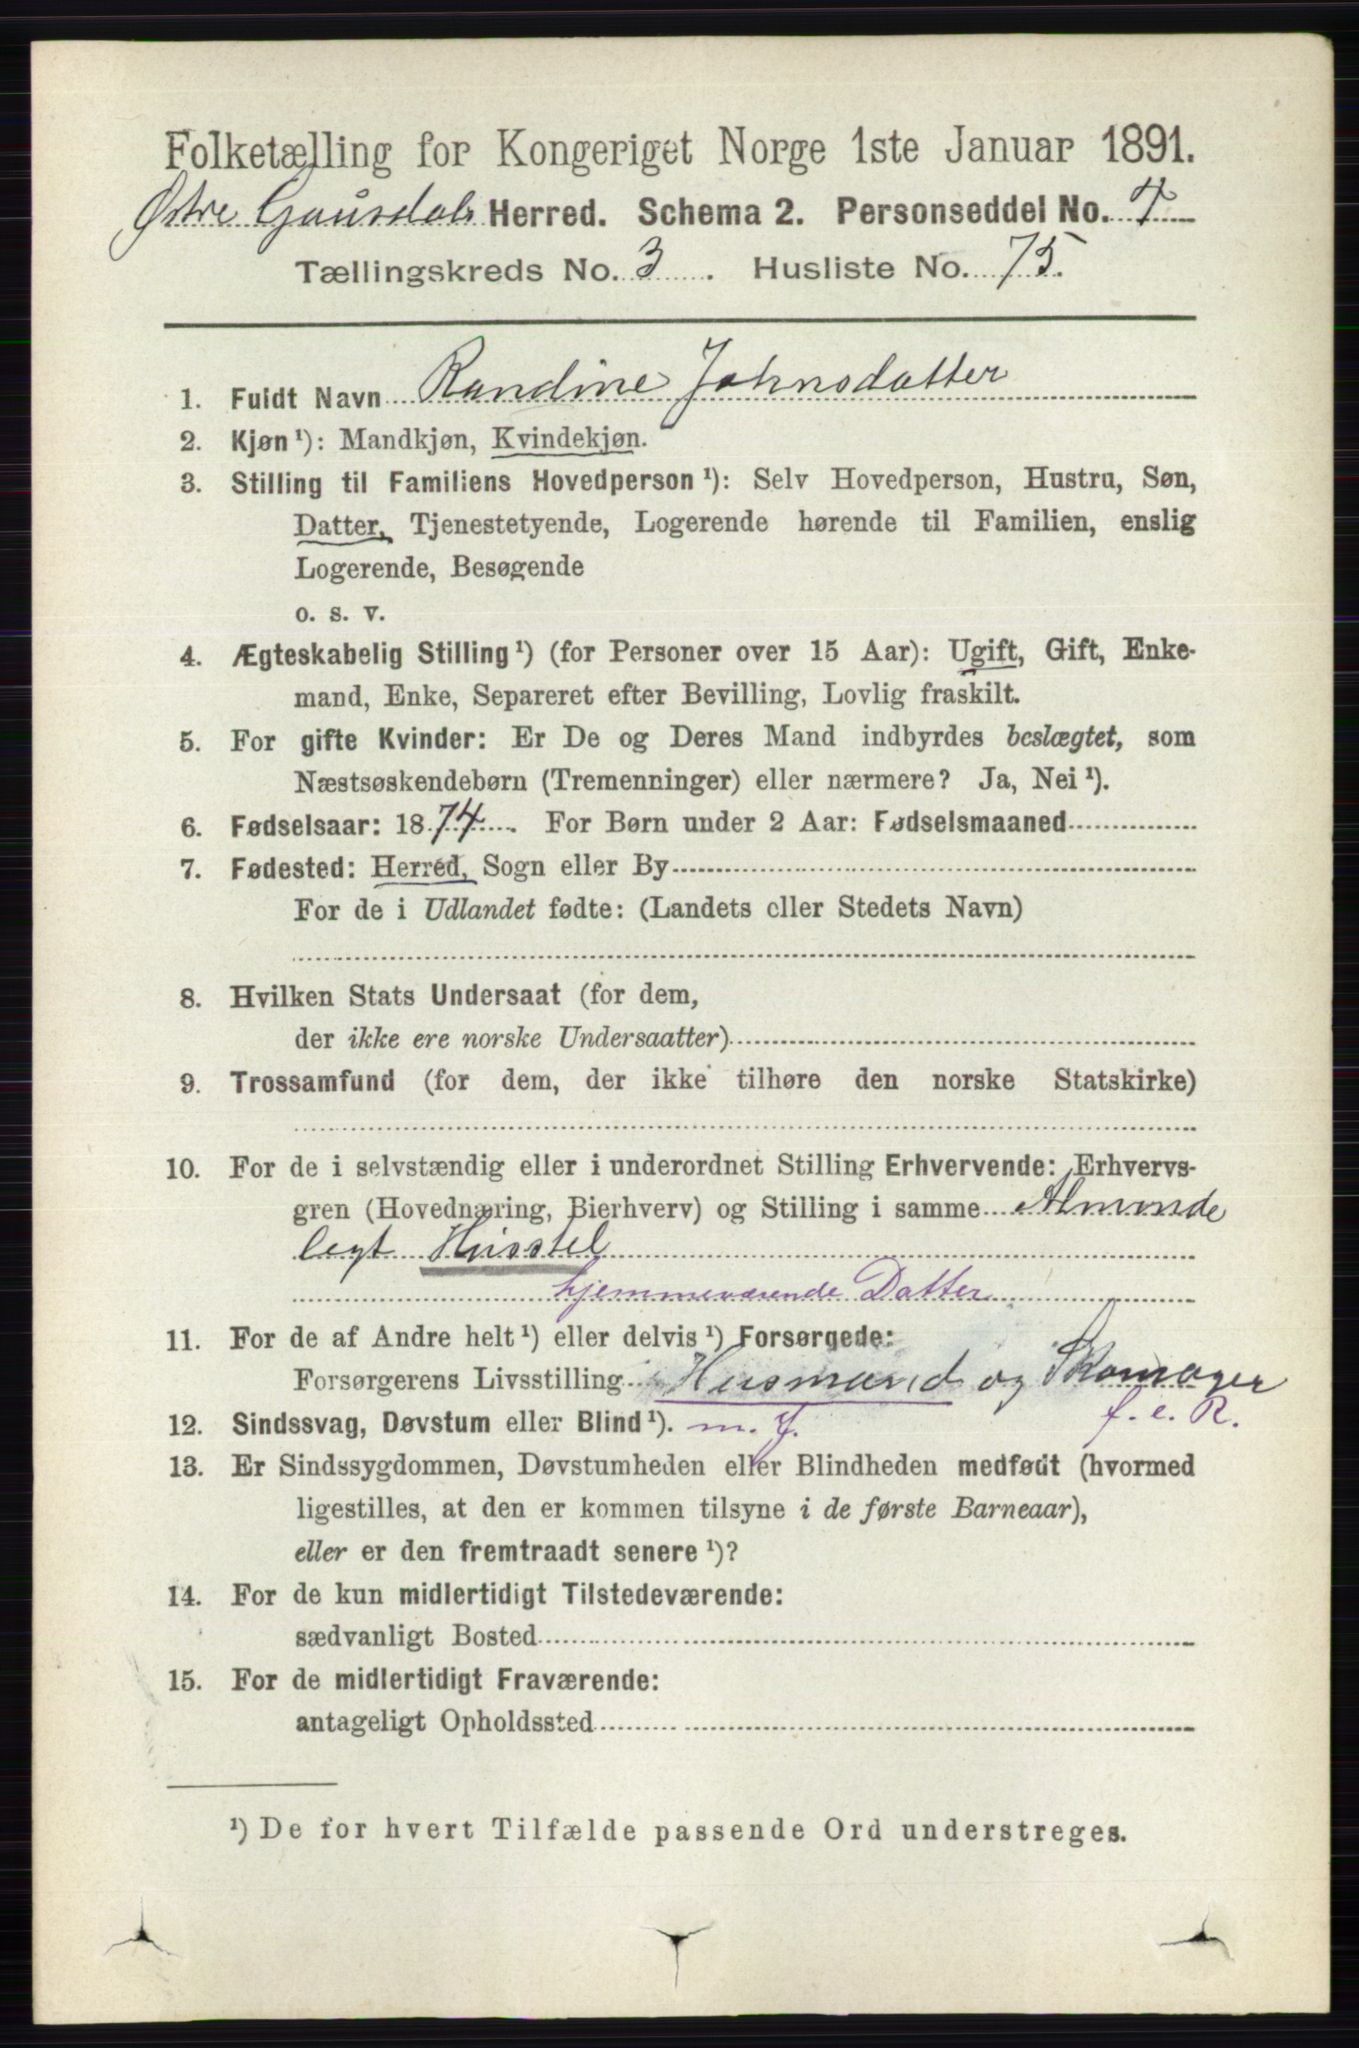 Folketælling for Kongeriget Norge 1ste Januar 1891.
Østre Gausdals Herred. Schema 2. Personseddel No. 7
Tællingskreds No. 3. Husliste No. 75.
1. Fuldt Navn Randine Johnsdatter
2. Kjøn ¹): Mandkjøn, Kvindekjøn.
3. Stilling til Familiens Hovedperson ¹): Selv Hovedperson, Hustru, Søn,
Datter, Tjenestetyende, Logerende hørende til Familien, enslig
Logerende, Besøgende
o. s. v.
4. Ægteskabelig Stilling ¹) (for Personer over 15 Aar): Ugift, Gift, Enke-
mand, Enke, Separeret efter Bevilling, Lovlig fraskilt.
5. For gifte Kvinder: Er De og Deres Mand indbyrdes beslægtet, som
Næstsøskendebørn (Tremenninger) eller nærmere? Ja, Nei ¹).
6. Fødselsaar: 1874. For Børn under 2 Aar: Fødselsmaaned
7. Fødested: Herred, Sogn eller By
For de i Udlandet fødte: (Landets eller Stedets Navn)
8. Hvilken Stats Undersaat (for dem,
der ikke ere norske Undersaatter)
9. Trossamfund (for dem, der ikke tilhøre den norske Statskirke)
10. For de i selvstændig eller i underordnet Stilling Erhvervende: Erhvervs-
gren (Hovednæring, Bierhverv) og Stilling i samme Alminde
legt Husstel
hjemmeværende Datter
11. For de af Andre helt ¹) eller delvis ¹) Forsørgede:
Forsørgerens Livsstilling Husmand og Skomager
12. Sindssvag, Døvstum eller Blind ¹). m. J. f. e. R.
13. Er Sindssygdommen, Døvstumheden eller Blindheden medfødt (hvormed
ligestilles, at den er kommen tilsyne i de første Barneaar),
eller er den fremtraadt senere ¹)?
14. For de kun midlertidigt Tilstedeværende:
sædvanligt Bosted
15. For de midlertidigt Fraværende:
antageligt Opholdssted
¹) De for hvert Tilfælde passende Ord understreges.